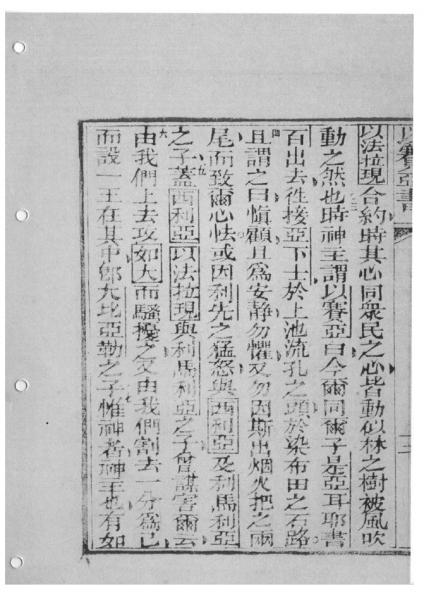 以賽亞書
以法拉現合約時其心同眾民之心皆動似林之樹被風吹
動之然也時神主謂以賽亞曰今爾同爾子是亞耳耶書
百出去徃接亞下士於上池流孔之頭於染布田之石路
且謂之曰慎顧且為安静勿懼又勿因斯出烟火把之兩
尾而致爾心怯或因利先之猛怒與西利亞及利馬利亞
之子蓋西利亞以法拉現與利馬利亞之子曾謀害爾云
由我們上去攻如大而騷擾之又由我們割去一分為己
而設一王在其中即大比亞勒之子惟神者神主也有如